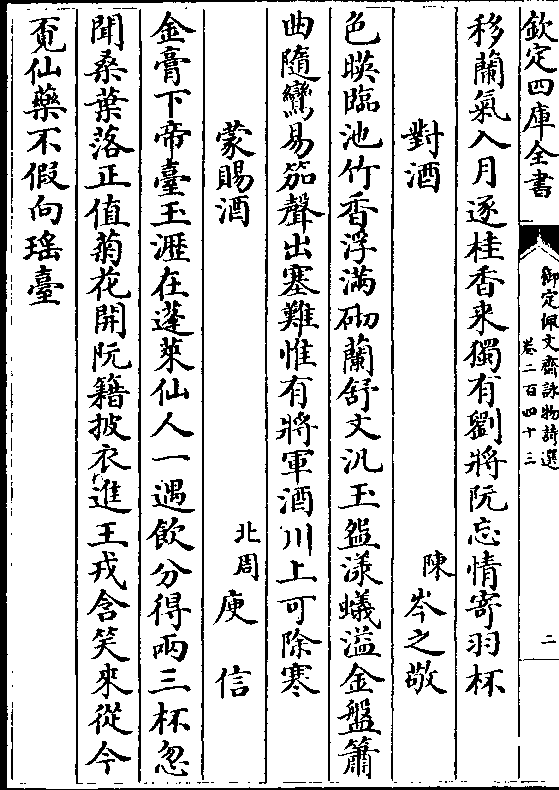 欽定四庫全書
御定佩文齋詠物詩選
卷二百四十三
二
移蘭氣入月逐桂香来獨有劉將阮忘情寄羽杯
對酒 陳岑之敬
色暎臨池竹香浮滿砌蘭舒文汎玉盌漾蟻溢金盤簫
曲隨鸞易笳聲出塞難惟有將軍酒川上可除寒
蒙賜酒 北周庾信
金膏下帝臺玉瀝在蓬萊仙人一遇飲分得兩三杯忽
聞桑葉落正值菊花開阮籍披衣進王戎含笑來從今
覔仙藥不假向瑶臺